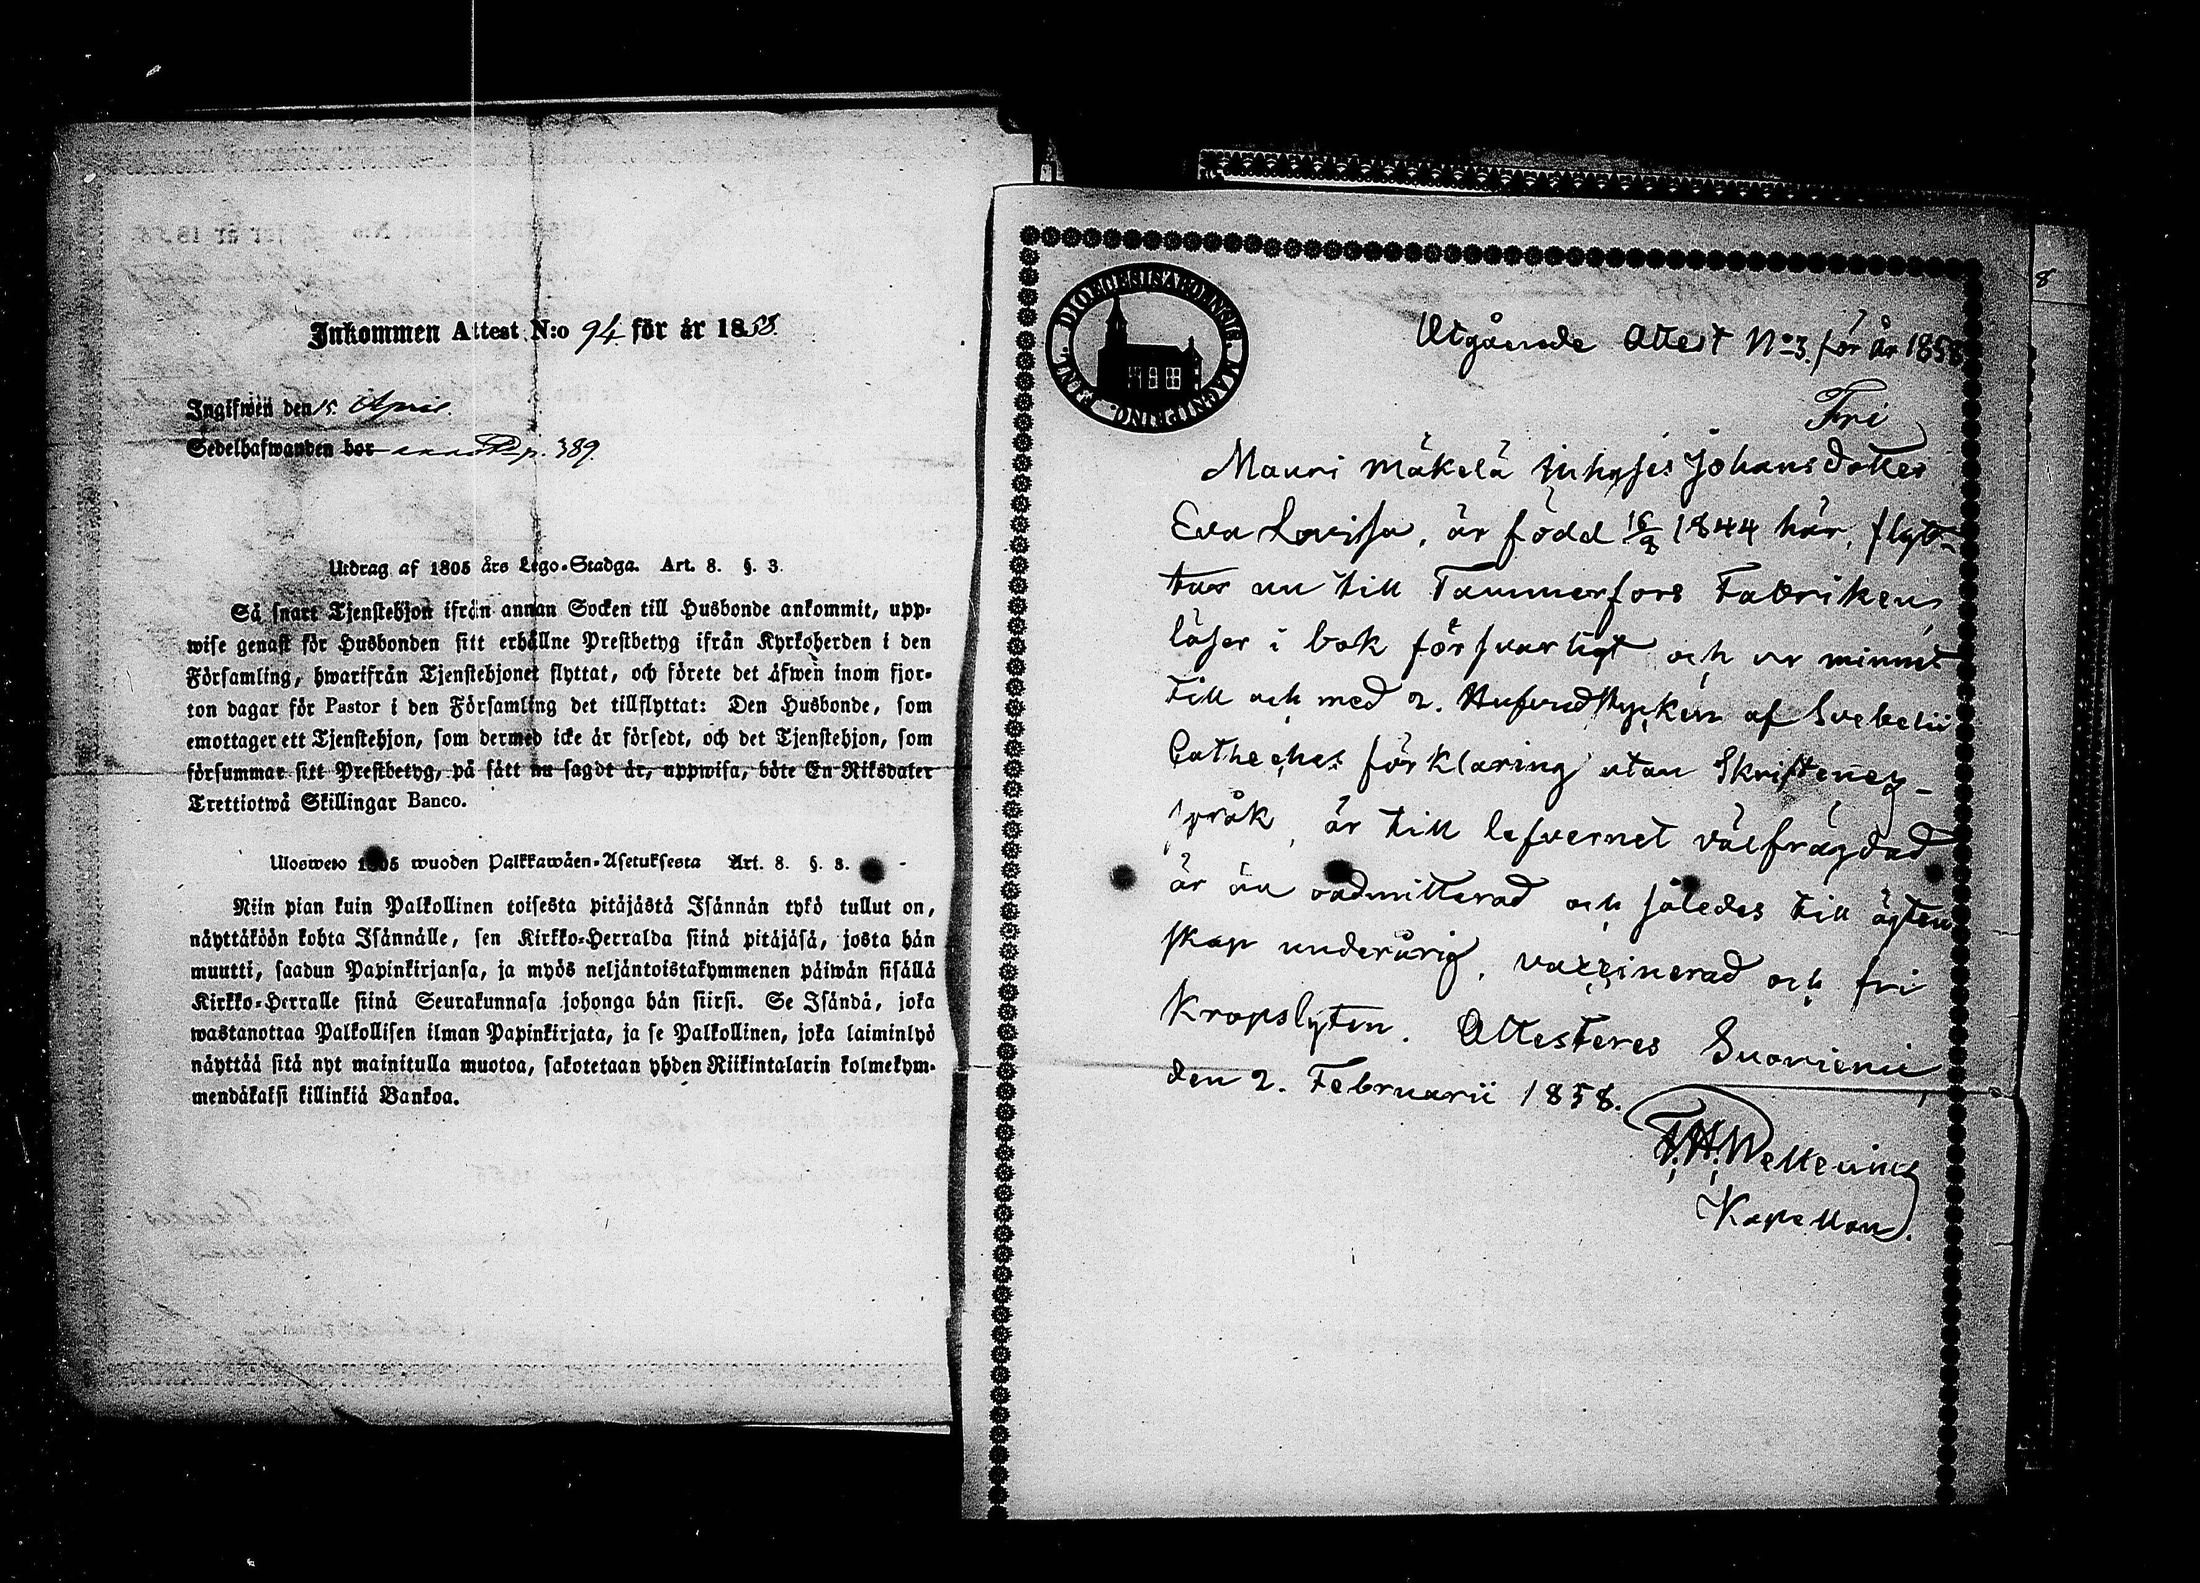 Inkommen Attest N:o 94 för år 1858.
Ingifwen den 15 April.
Sedelhafwanden bor p. 389.
Utdrag af 1805 års Lego-Stadga. Art. 8. §. 3.
Så snart Tjenstehjon ifrån annan Socken till Husbonde ankommit, upp-
wise genast för Husbonden sitt erhållne Prestbetyg ifrån Kyrkoherden i den
Församling, hwarifrån Tjenstehjonet flyttat, och förete det äfwen inom fjor-
ton dagar för Pastor i den Församling det tillflyttat: Den Husbonde, som
emottager ett Tjenstehjon, som dermed icke är försedt, och det Tjenstehjon, som
försummar sitt Prestbetyg, på sätt nu sagdt är, uppwisa, böte En Riksdaler
Trettiotwå Skillingar Banco.
Ulosweto 1805 wuoden Palkkawäen-Asetuksesta Art. 8. §. 3.
Niin pian kuin Palkollinen toisesta pitäjästä Isännän tykö tullut on,
näyttäköön kohta Isännälle, sen Kirkko-Herralda siinä pitäjäsä, josta hän
muutti, saadun Papinkirjansa, ja myös neljäntoistakymmenen päiwän sisällä
Kirkko-Herralle siinä Seurakunnasa johonga hän siirsi. Se Isändä, joka
wastanottaa Palkollisen ilman Papinkirjata, ja se Palkollinen, joka laiminlyö
näyttää sitä nyt mainitulla muotoa, sakotetaan yhden Riikintalarin kolmekym-
mendäkaksi killinkiä Bankoa.
8
DIOECESIS ABOËNSIS MAGNI PRINC. FENN.
Utgående Attest No 3. för År 1858
Fri
Mauri Mäkelä Johansdotter
Eva Lovisa, är född 16/9 1844 här, flyt-
tar nu till Tammerfors Fabriken,
läser i bok försvarligt och ur minnet
till och med 2. Hufvudstycken af Svebelii
Catheches förklaring utan Skriftenes
språk, är till lefvernet välfrägdad
är än oadmitterad och således till ägten
skap underårig, vaxxinerad och fri
Kropslyten. Attesteres Suorieni
den 2. Februarii 1858.
Kapellan.